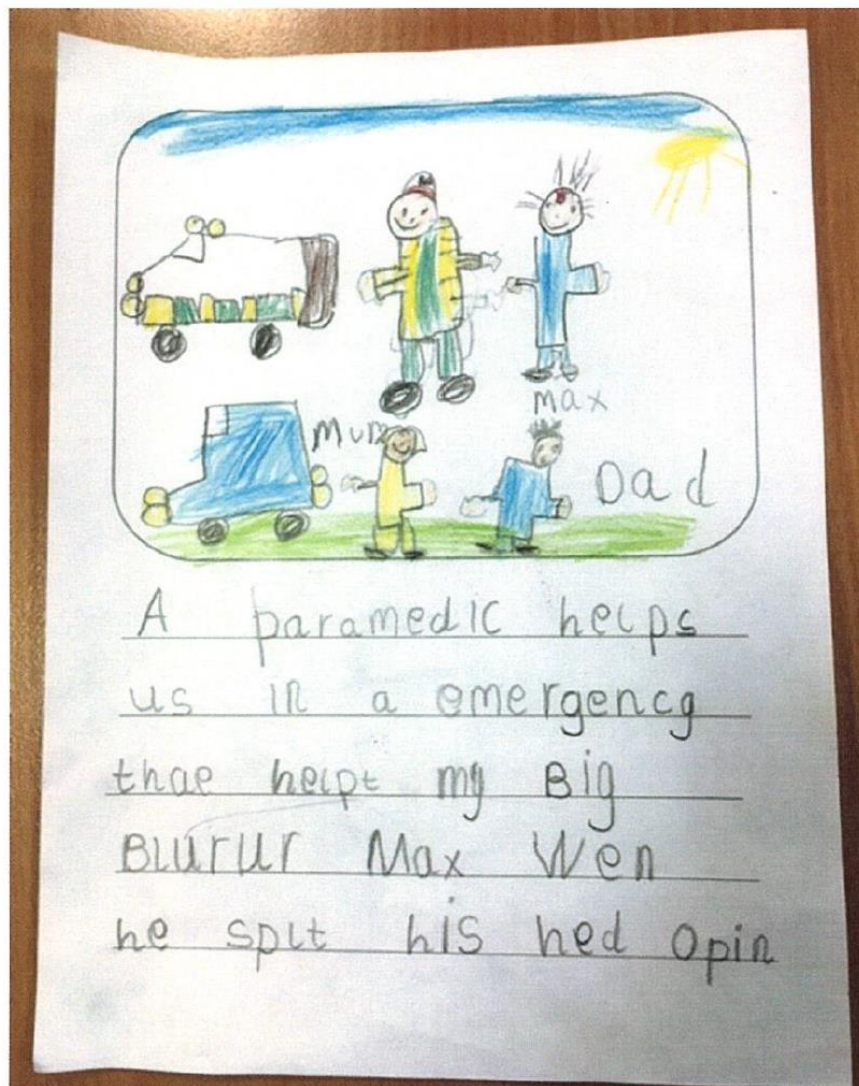 Mum
Max
Dad
A paramedic helps
us in a emergency
thae helpt my Big
Blurur Max Wen
he splt his hed opin